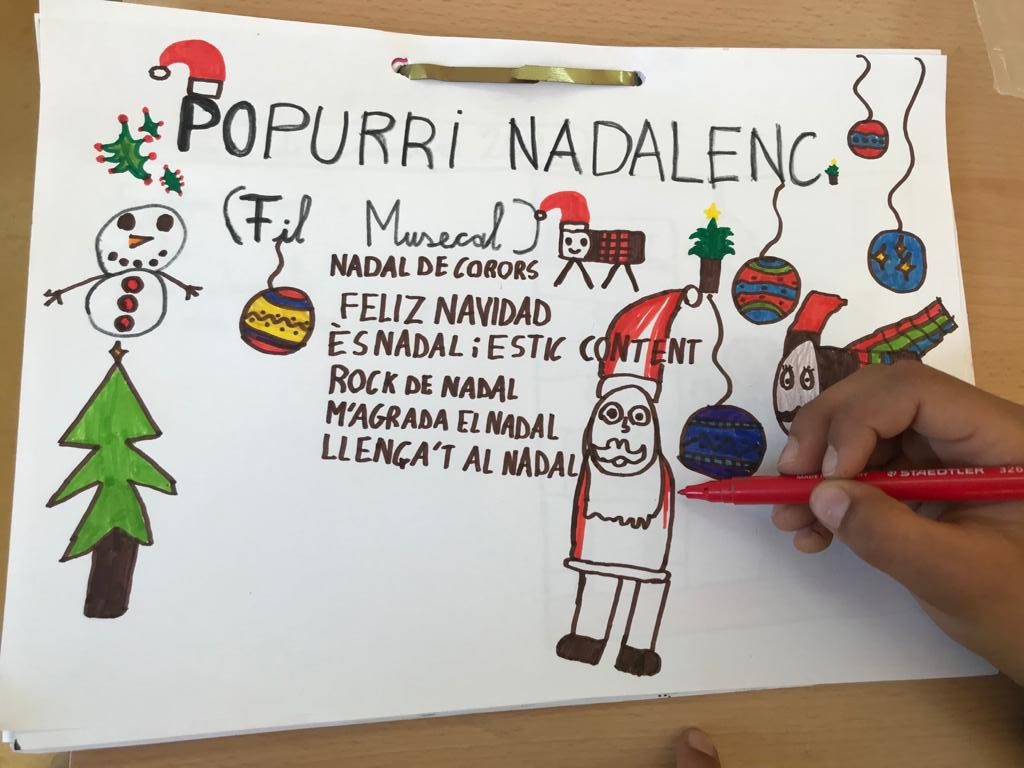 POPURRi NADALENC.
(Fil Musecal)
NADAL DE CORORS
FELIZ NAVIDAD
ÈS NADAL i ESTIC CONTENT
ROCK DE NADAL
M'AGRADA EL NADAL
LLENÇA'T AL NADAL
STAEDTLER 326